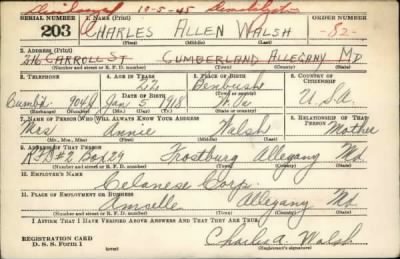 10-5-45 Demobilization
SERIAL NUMBER 1. NAME (Print) ORDER NUMBER
203 CHARLES ALLEN WALSH -82-
(First) (Middle) (Last)
2. ADDRESS (Print)
216 CARROLL ST CUMBERLAND ALLEGANY MD
(Number and street or R. F. D. number) (Town) (County) (State)
3. TELEPHONE 4. AGE IN YEARS 5. PLACE OF BIRTH 6. COUNTRY OF CITIZENSHIP
22
DATE OF BIRTH
Cumb'd. 904J Jan 5 1918 U.S.A.
(Exchange) (Number) (Mo.) (Day) (Yr.) (State or country)
7. NAME OF PERSON WHO WILL ALWAYS KNOW YOUR ADDRESS 8. RELATIONSHIP OF THAT PERSON
Mrs. Annie Walsh Mother
(Mr., Mrs., Miss) (First) (Middle) (Last)
9. ADDRESS OF THAT PERSON
RFD #2, Box 29 Frostburg Allegany Md.
(Number and street or R. F. D. number) (Town) (County) (State)
10. EMPLOYER'S NAME
Celanese Corp.
11. PLACE OF EMPLOYMENT OR BUSINESS
Amcelle Allegany Md.
(Number and street or R. F. D. number) (Town) (County) (State)
I AFFIRM THAT I HAVE VERIFIED ABOVE ANSWERS AND THAT THEY ARE TRUE.
REGISTRATION CARD
D. S. S. Form 1
Charles A. Walsh
(Registrant's signature)